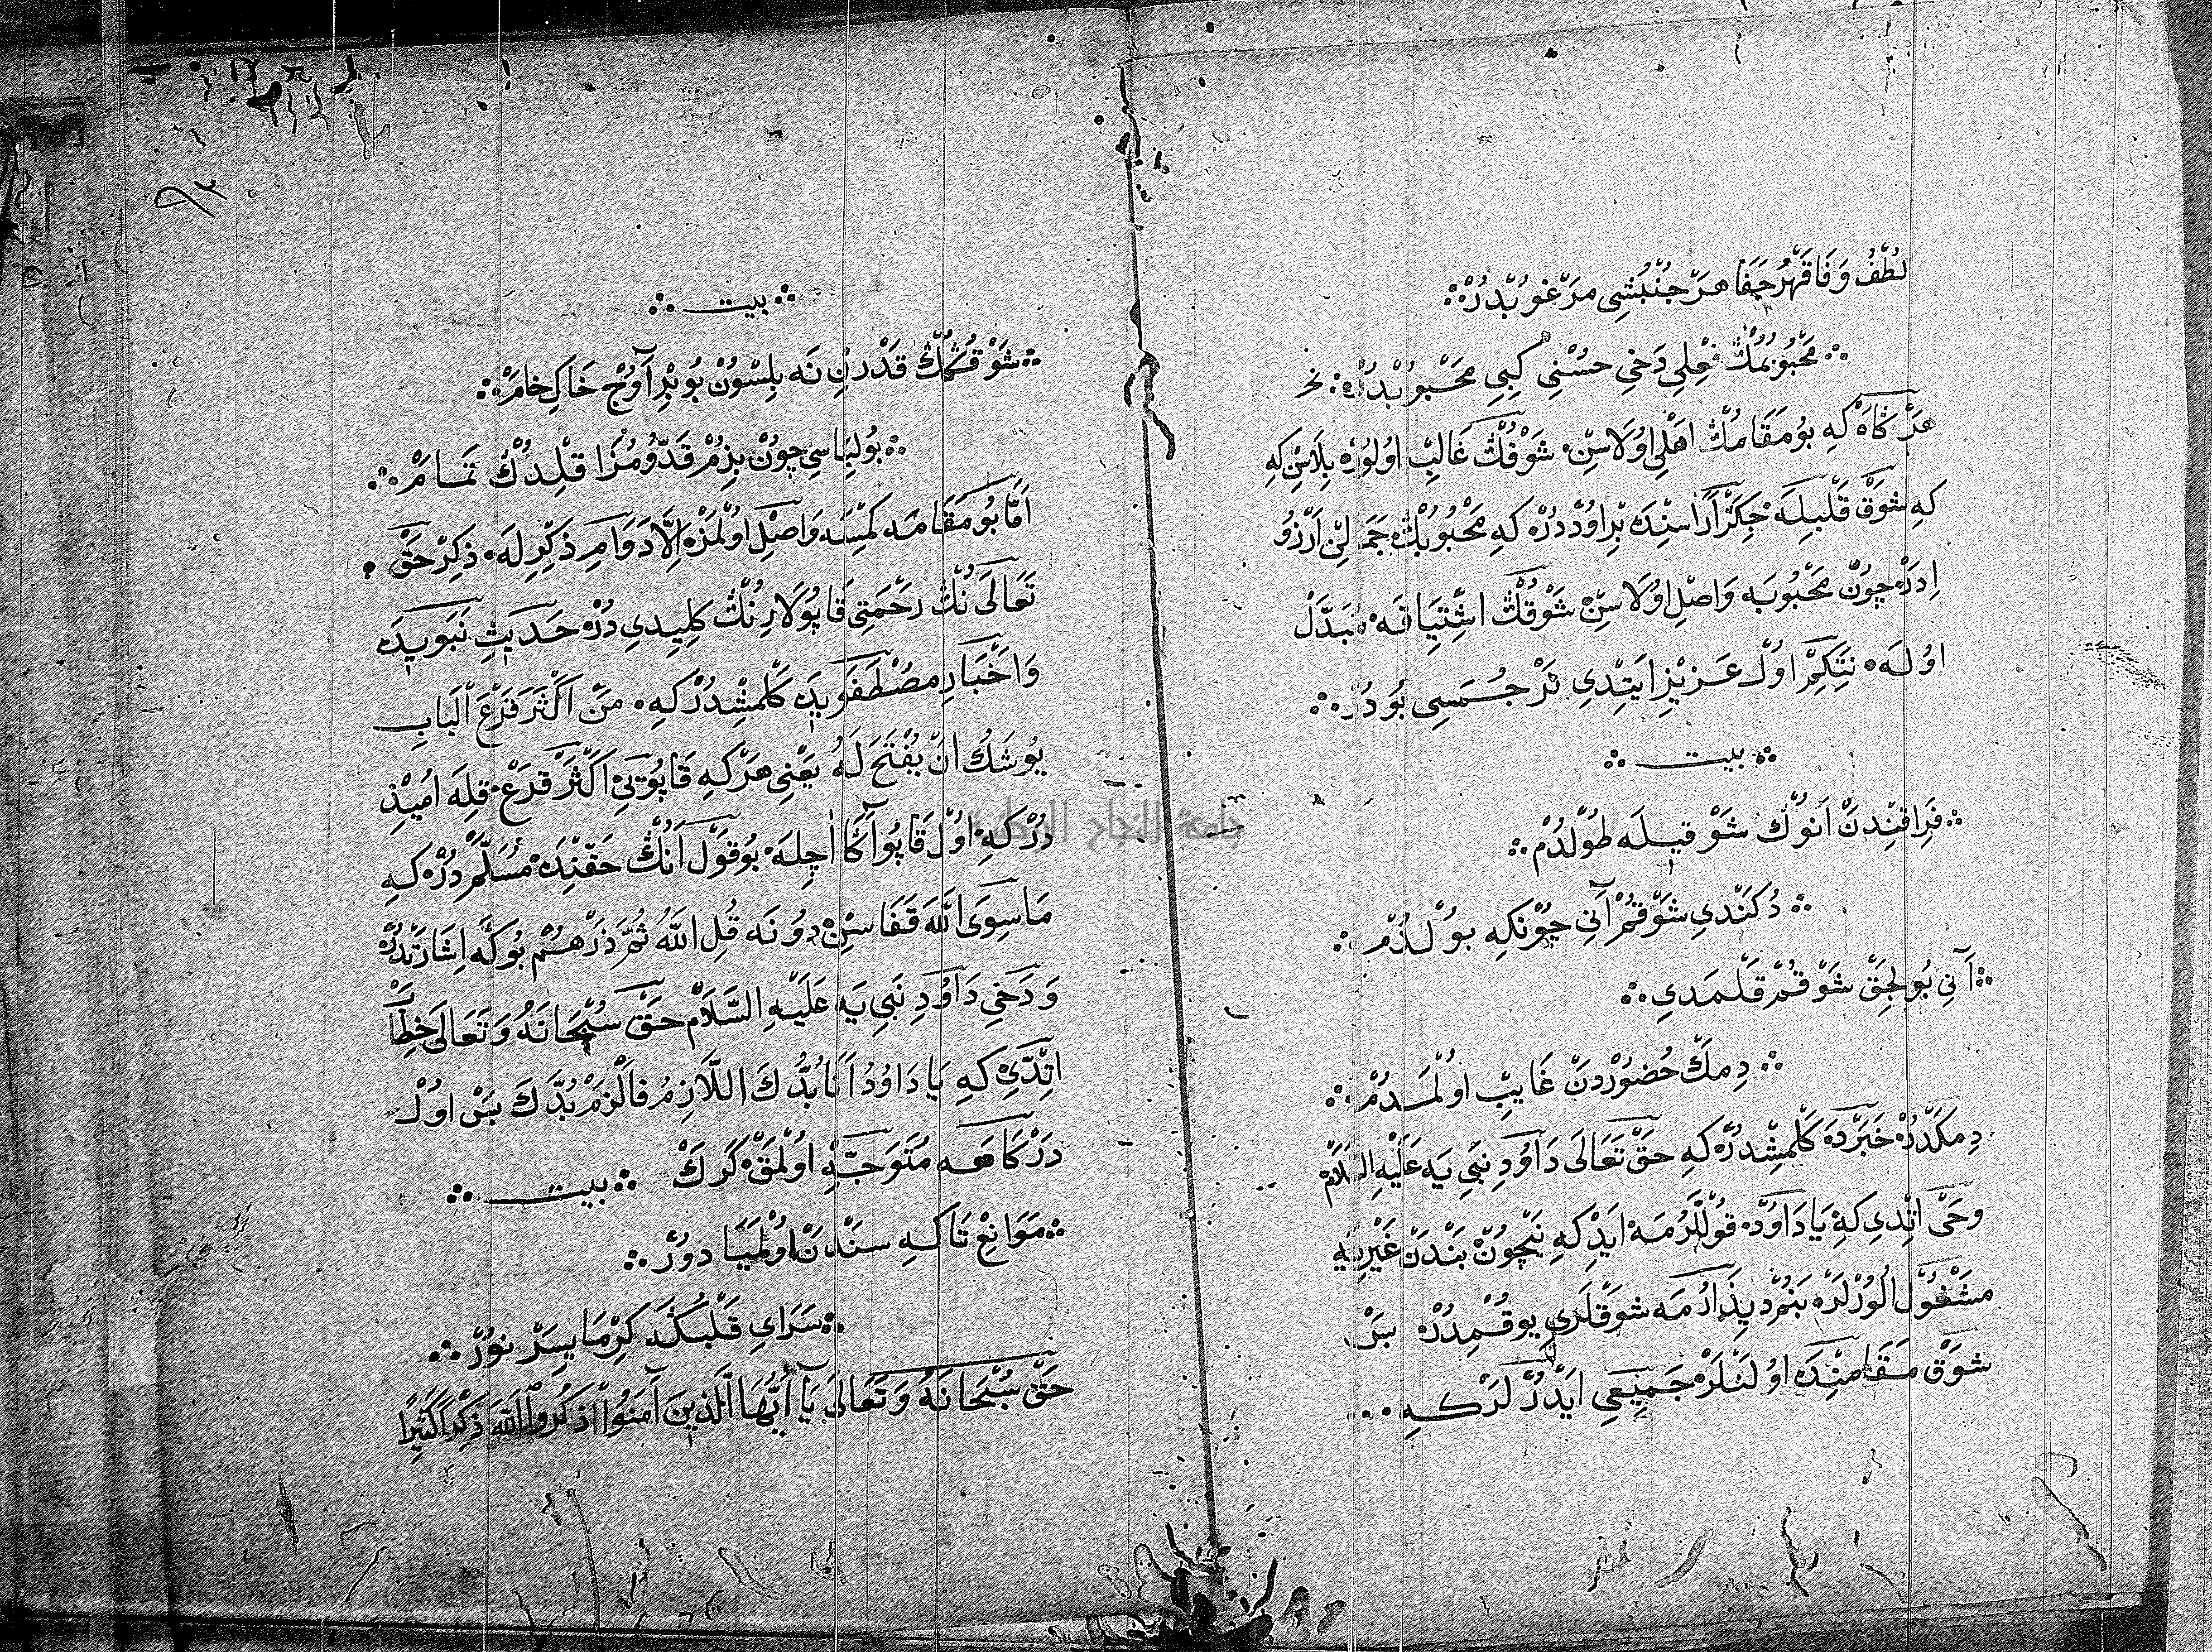 لُطْفُ وَفَا قَهْرُ جَفَا هَرْ جُنْبُشِى مَرْغُوبُدُرْ
مَحْبُوبُمُڭْ فِعْلِى دَخِي حُسْنِي كِبِي مَحْبُوبْدُرْ
هَرْ كَاهْ كِه بُو مَقَامُڭْ اهْلِى اوُلَاسِنْ شَوْقُڭْ غَالِبْ اوُلُورْ بِلَاسِنْ كِه
كِه شَوْقْ قَلْبِيلَه جِكَرْ آرَاسِنْدَه بِرْ اوُدْ دُرْ كِه مَحْبُوبُڭْ جَمَالِنْ آرْزُو
اِدَرْ چُونْ مَحْبُوبَه وَاصِلْ اوُلَاسِنْ شَوْقُڭْ اشْتِيَاقَه مُبَدَّلْ
اوُلَه نِتَكِمْ اوُلْ عَزِيزْ ايَتْدِى تَرْجُمَسِى بُودُرْ
بيت
فِرَاقِنْدَنْ اَنُوڭْ شَوْقِيلَه طُولْدُمْ
دُكَنْدِي شَوْقُمْ آنِي چُونكِه بُولْدُمْ
آنِي بُولِجَقْ شَوْقُمْ قَلْمَدِي
دِمَكْ حُضُورْدَنْ غَايِبْ اوُلْمَدُمْ
دِمَكْدُرْ خَبَرْدَه كَلْمِشْدُرْ كِه حَقّ تَعَالَى دَاوُدِ نَبِي يَه عَلَيْهِ السَّلَامْ
وَحْى اتْدِي كِه يَا دَاوُدْ قُولْلَرُمَه ايَدْ كِه نِچُونْ بَنْدَنْ غَيْرِيَه
مَشْغُولْ الُورْلَرْ بَنُمْ دِيذَارُمَه شَوْقْلَرِي يُوقْمِدُرْ بَسْ
شَوْقْ مَقَامِنْدَه اوُلَنْلَرْ جَمِيعِي ايَدُرْلَرْ كِه
بيت
شَوْقُڭُڭْ قَدْرِنِ نَه بِلْسُونْ بُو بِرْ آوُجْ خَاكِ خَامْ
بُو لِبَاسِي چُونْ بِزُمْ قَدُّومُزَا قِلْدُڭْ تَمَامْ
اَمَّا بُو مَقَامَه كِمْسَه وَاصِلْ اوُلْمَزْ اِلَّا دَوَامِ ذِكْرِلَه ذِكْرِ حَقّْ
تَعَالَى نُڭْ رَحْمَتِي قَاپُولَارِنُڭْ كِلِيدِي دُرْ حَدِيثِ نَبَوِيدَه
وَاَخْبَارِ مُصْطَفَوِيدَه كَلْمِشْدُرْ كِه مَنْ اَكْثَرَ قَرْعَ الْبَابِ
يُوشَكُ اَنْ يُفْتَحَ لَهُ يَعْنِي هَرْ كِه قَاپُويِي اَكْثَرْ قَرْعْ قِلَه اُمِيذِ
دُرْ كِه اوُلْ قَاپُو آڭَا اچِلَه بُو قَوْلْ اَنُڭْ حَقِّنْدَه مُسَلَّمْ دُرْ كِه
مَاسِوَى اللَّه قَفَاسِنْ دُونَه قُلِ اللَّهُ ثُمَّ ذَرْهُمْ بُوڭَه اِشَارَتْدُرْ
وَدَخِي دَاوُدِ نَبِي يَه عَلَيْهِ السَّلَامْ حَقّ سُبْحَانَهُ وَتَعَالَى خِطَابْ
اتْدِي كِه يَا دَاوُدُ اَنَا بُدُّكَ اللَّازِمُ فَالْزَمْ بُدَّكَ بَسْ اوُلْ
دَرْكَاهَه مُتَوَجِّهْ اوُلْمَقْ كَرَكْ بيت
مَوَانِعْ تَا كِه سَنْدَنْ اوُلْمَيَا دوُرْ
سَرَايِ قَلْبُڭَه كِرْمَايِسَرْ نُورْ
حَقّ سُبْحَانَهُ وَتَعَالَى يَا اَيُّهَا الَّذِينَ آمَنُوا اذْكُرُوا اللَّهَ ذِكْرًا كَثِيرًا